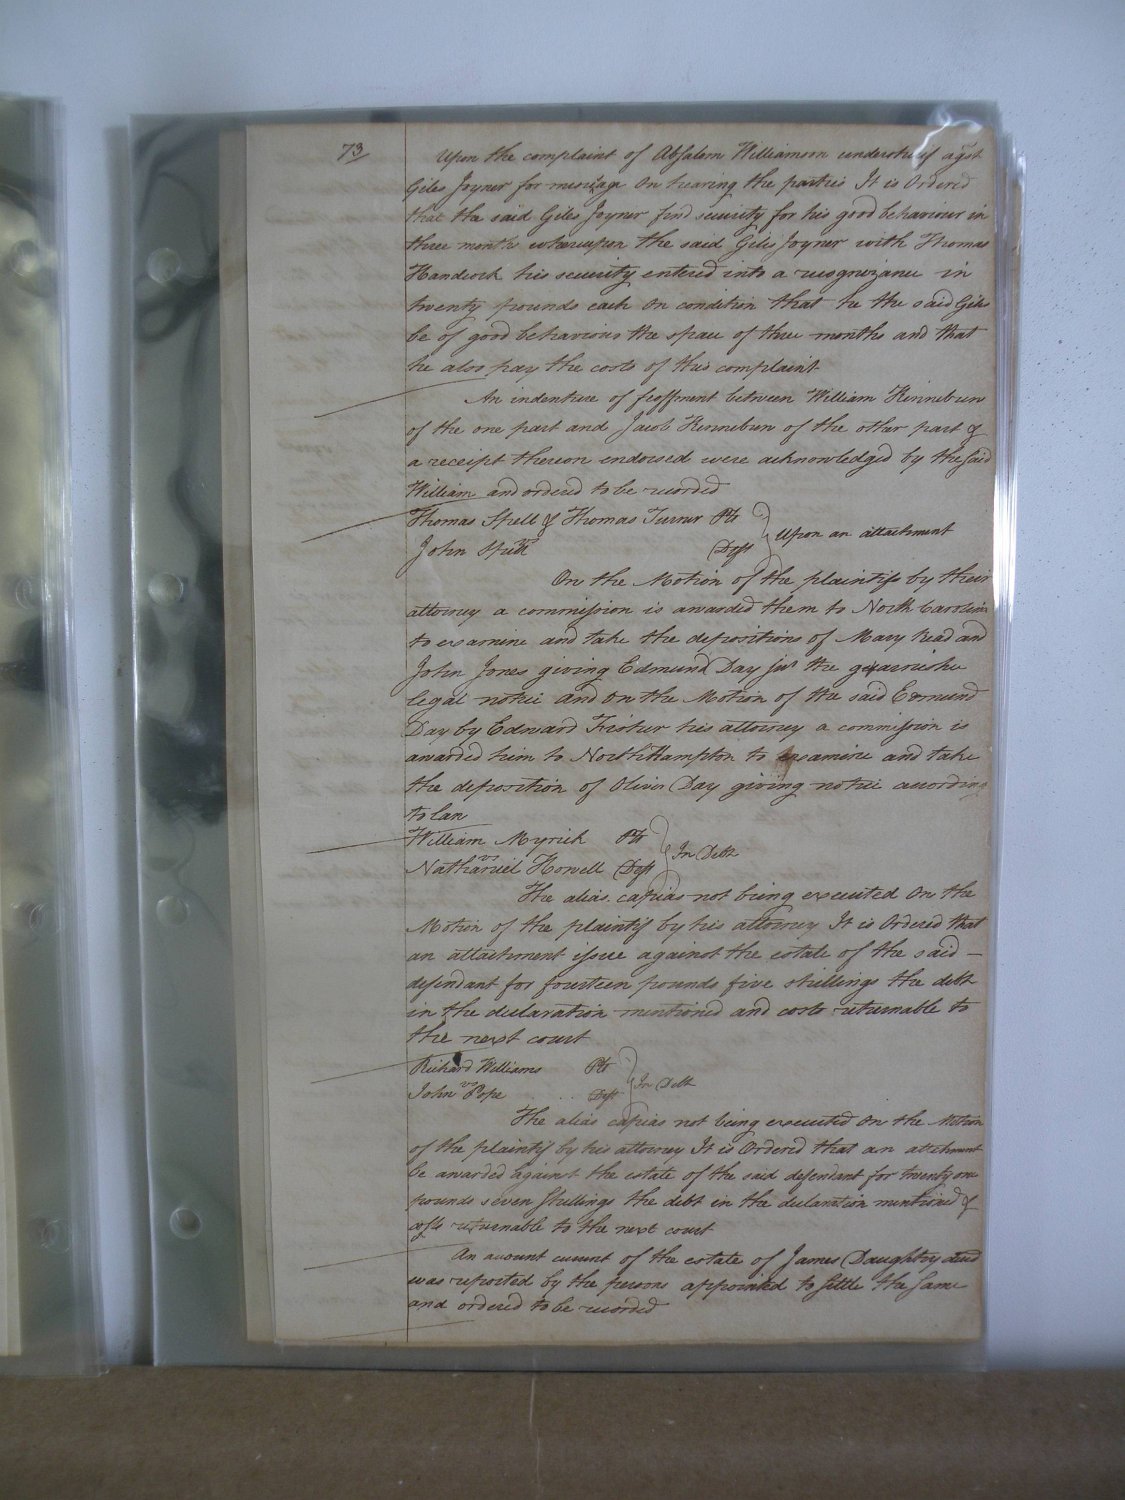 73
Upon the complaint of Absalem Williamson undersherif agst
Giles Joyner for misusage On hearing the parties It is Ordered
that the said Giles Joyner find security for his good behaviour in
three months whereupon the said Giles Joyner with Thomas
Handcock his security entered into a recognizance in
twenty pounds each on condition that he the said Giles
be of good behaviour the space of three months and that
he also pay the costs of this complaint
An indenture of feoffment between William Kinnebrew
of the one part and Jacob Kinnebrew of the other part &
a receipt thereon endorsed were acknowledged by the said
William and ordered to be recorded
Thomas Spell & Thomas Turner Plts
vs Upon an attachment
John Deft
On the Motion of the plaintifs by their
attorney a commission is awarded them to North Carolina
to examine and take the depositions of Mary Read and
John Jones giving Edmund Day junr the garnishee
legal notice and On the Motion of the said Edmund
Day by Edward Fisher his attorney a commission is
awarded him to NorthHampton to examine and take
the deposition of Oliver Day giving notice according
to law
William Myrick Plt
vs In Debt
Nathaniel Howell Deft
The alias capias not being executed On the
Motion of the plaintif by his attorney It is Ordered that
an attachment issue against the estate of the said
defendant for fourteen pounds five shillings the debt
in the declaration mentioned and costs returnable to
the next court
Richard Williams Plt
vs In Debt
John Pope Deft
The alias capias not being executed On the Motion
of the plaintif by his attorney It is Ordered that an attachment
be awarded against the estate of the said defendant for twenty one
pounds seven shillings the debt in the declaration mentioned &
costs returnable to the next court
An account current of the estate of James Daughtry decd
was reported by the persons appointed to settle the same
and ordered to be recorded